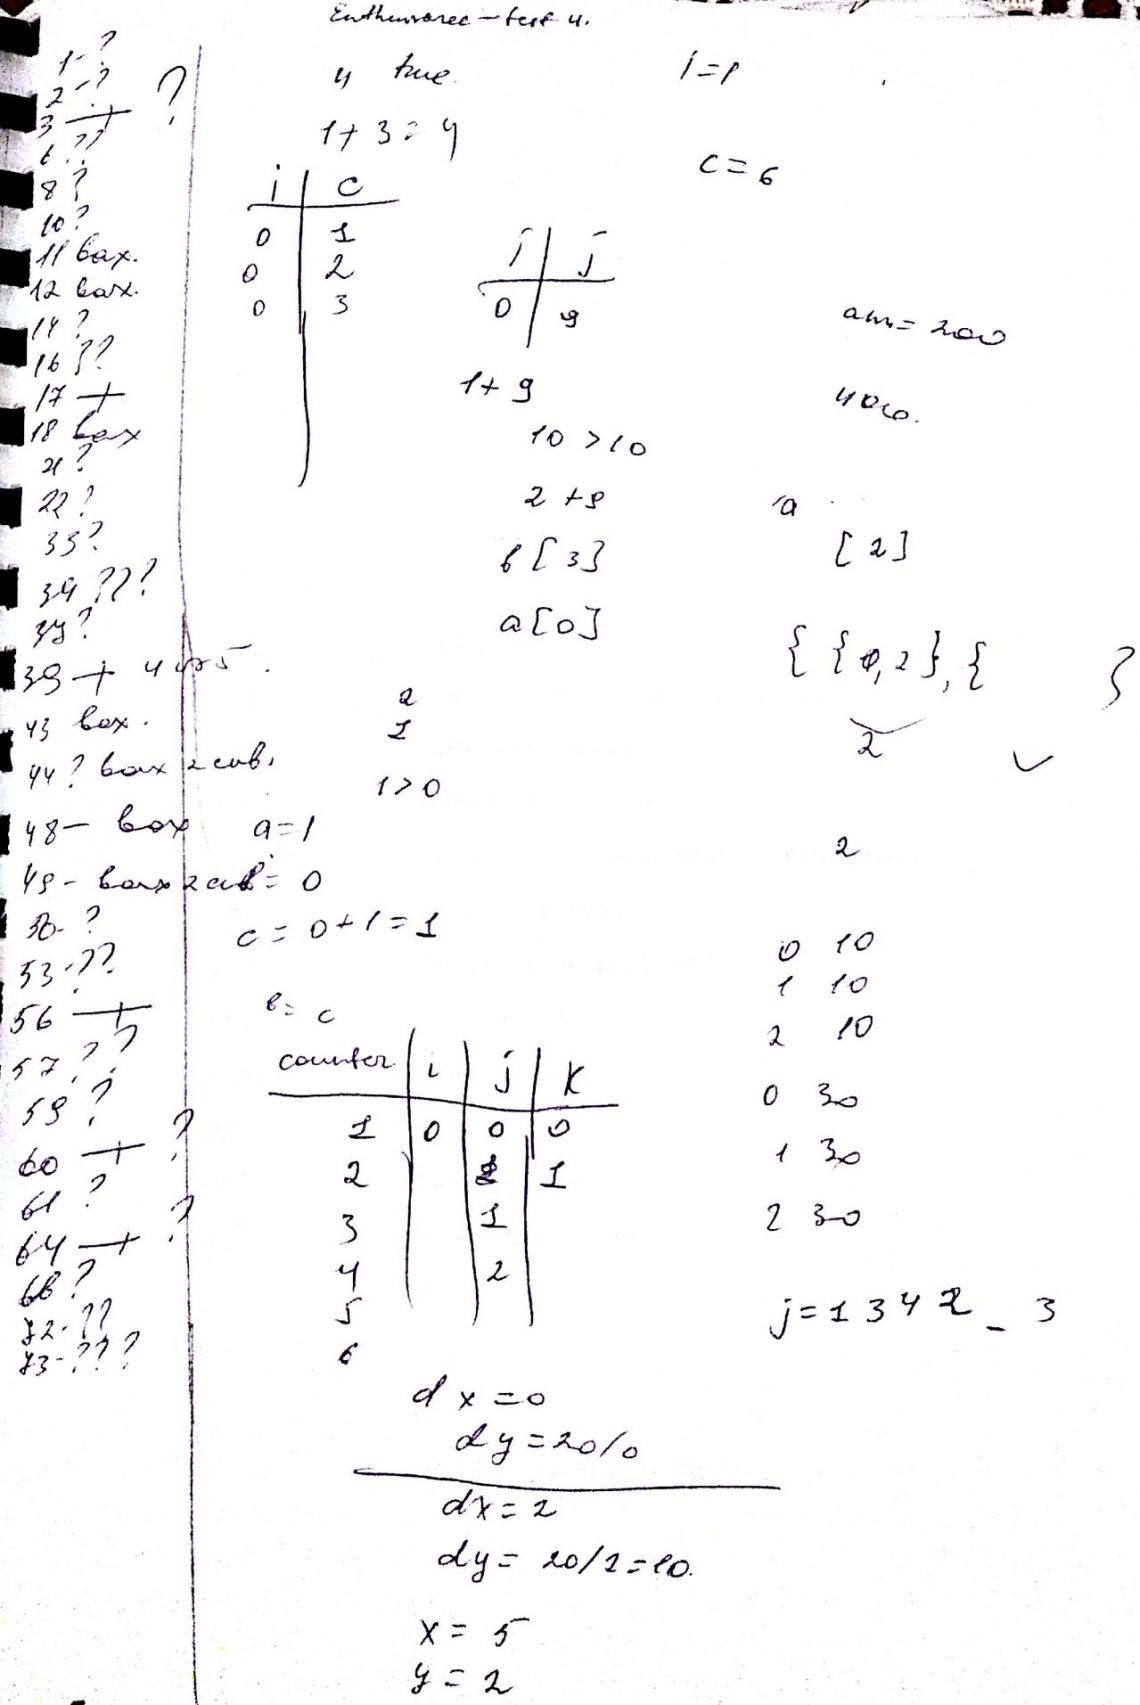 Enthuware - test 4.
1-?
2-?
3 + ?
6 ??
8 ?
10 ?
11 важ.
12 важ.
14 ?
16 ??
17 +
18 важ
21 ?
22 ?
33 ?
34 ???
37 ?
39 + 4 из 5.
43 важ.
44 ? важ 2 cкв.
48 - важ
49 - важ
50 - ?
53 - ??
56 +
57 ??
59 ?
60 + ?
61 ?
64 + ?
68 ?
72 - ??
73 - ???
4 true.
i=1
1+3=4
c=6
i c
0 1
0 2
0 3
i j
0 9
ans=200
1+9
400.
10 >10
2 +9
a
b[3]
[2]
a[0]
{ {0,2}, { }
2
2
1
1>0
a=1
2
= 0
c = 0+1=1
b= c
0 10
1 10
2 10
0 30
1 30
2 30
counter i j k
1 0 0 0
2 1
3 1
4 2
5
6
j=1 3 4 2 _ 3
dx=0
dy=20/0
dx=2
dy= 20/2=10.
x = 5
y = 2